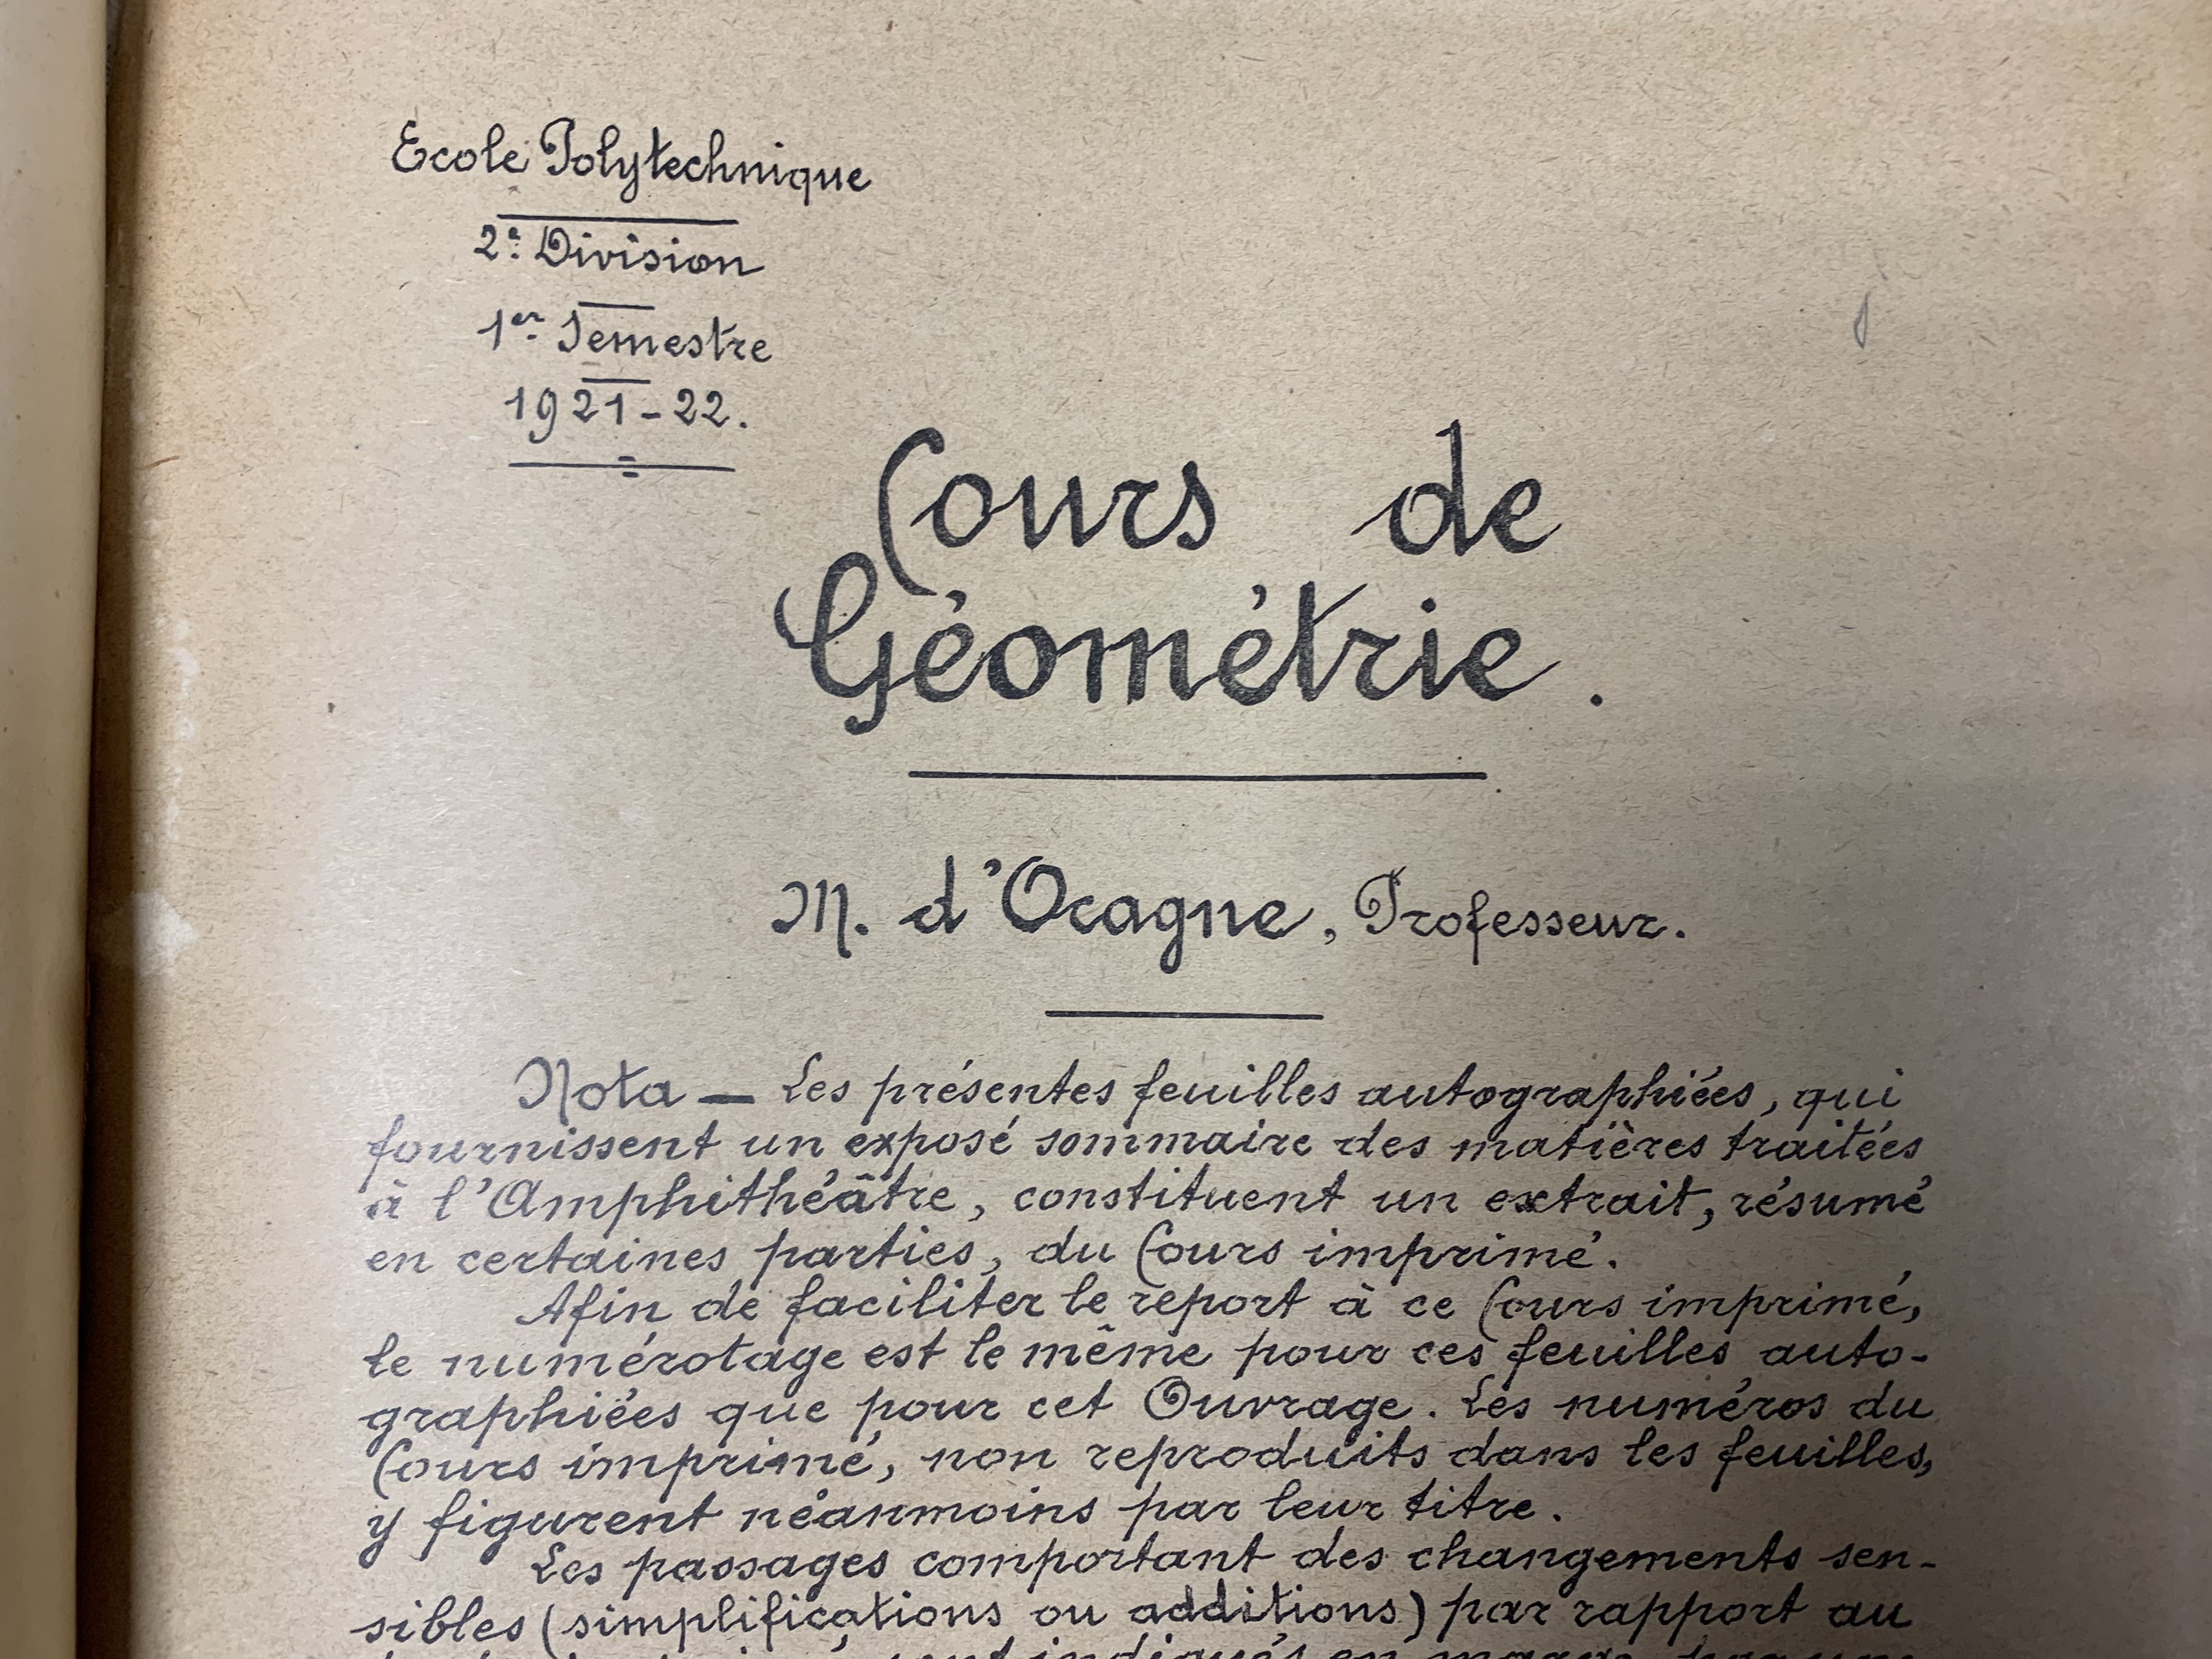 Ecole Polytechnique
2e Division
1er Semestre
1921-22.
Cours de
Géométrie.
M. d'Ocagne, Professeur.
Nota — Les présentes feuilles autographiées, qui
fournissent un exposé sommaire des matières traitées
à l'Amphithéâtre, constituent un extrait, résumé
en certaines parties, du Cours imprimé.
Afin de faciliter le report à ce Cours imprimé,
le numérotage est le même pour ces feuilles auto-
graphiées que pour cet Ouvrage. Les numéros du
Cours imprimé, non reproduits dans les feuilles,
y figurent néanmoins par leur titre.
Les passages comportant des changements sen-
sibles (simplifications ou additions) par rapport au
sont indiqués en marge par une